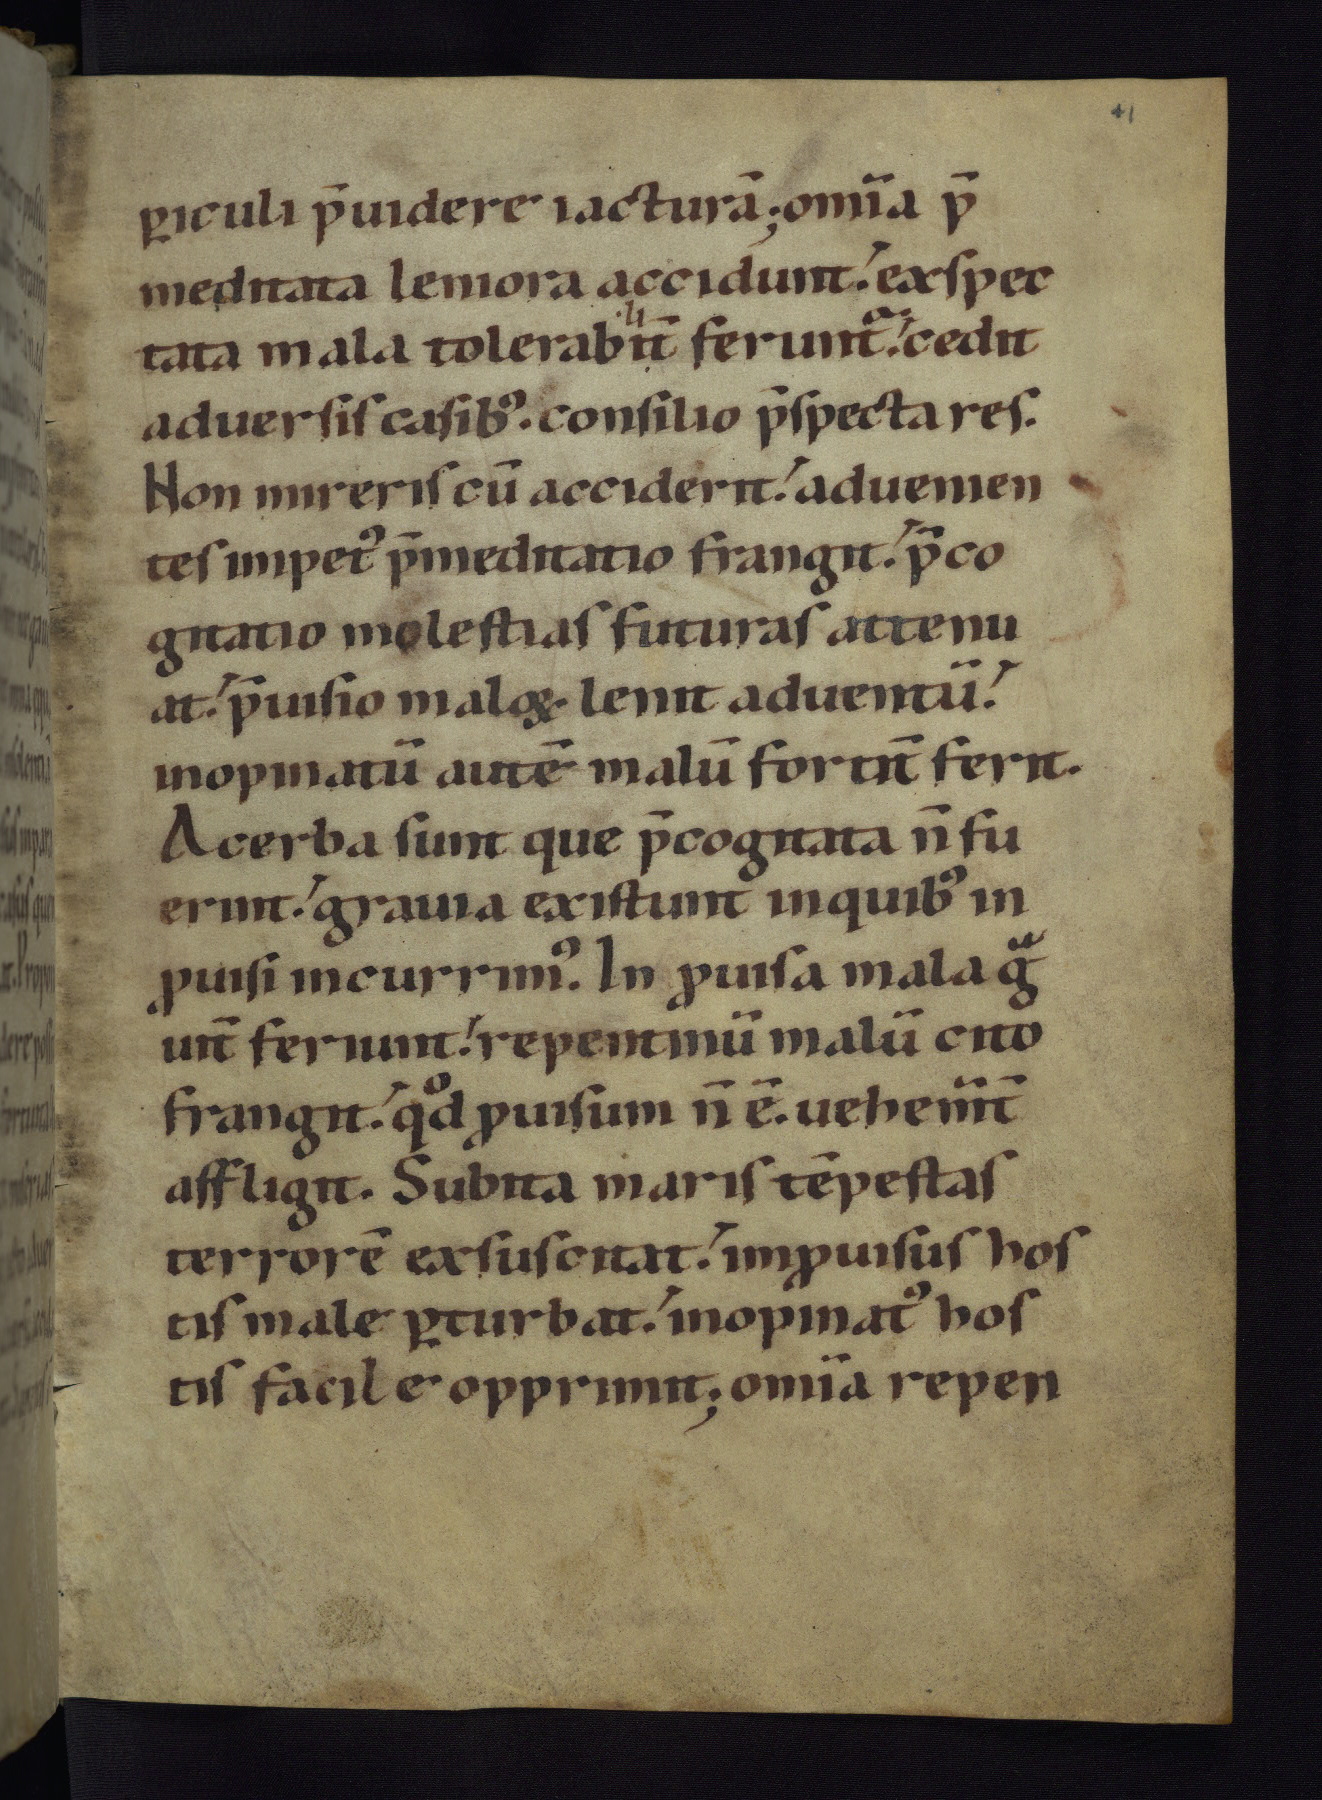 41
ꝑiculi p̄uidere iacturā; om̄ia p̄
meditata leniora accidunt. exspec
tata mala tolerabiłit̄ ferunt᷑. cedit
aduersis casibꝰ. consilio p̄specta res.
Non mireris cū acciderit. aduenien
tes impetꝰ p̄meditatio frangit. p̄co
gitatio molestias futuras attenu
at. p̄uisio maloꝝ lenit aduentū.
inopinatū autē malū fortit̄ ferit.
Acerba sunt que p̄cogitata n̄ fu
erint. grauia existunt inquibꝰ in
ꝓuisi incurrimꝰ. In ꝓuisa mala gͣ
uit̄ feriunt. repentinū malū cito
frangit. qͦd ꝓuisum n̄ ē. uehem̄t̄
affligit. Subita maris tēpestas
terrorē exsuscitat. imꝓuisus hos
tis male ꝑturbat. inopinatꝰ hos
tis facile opprimit; om̄ia repen